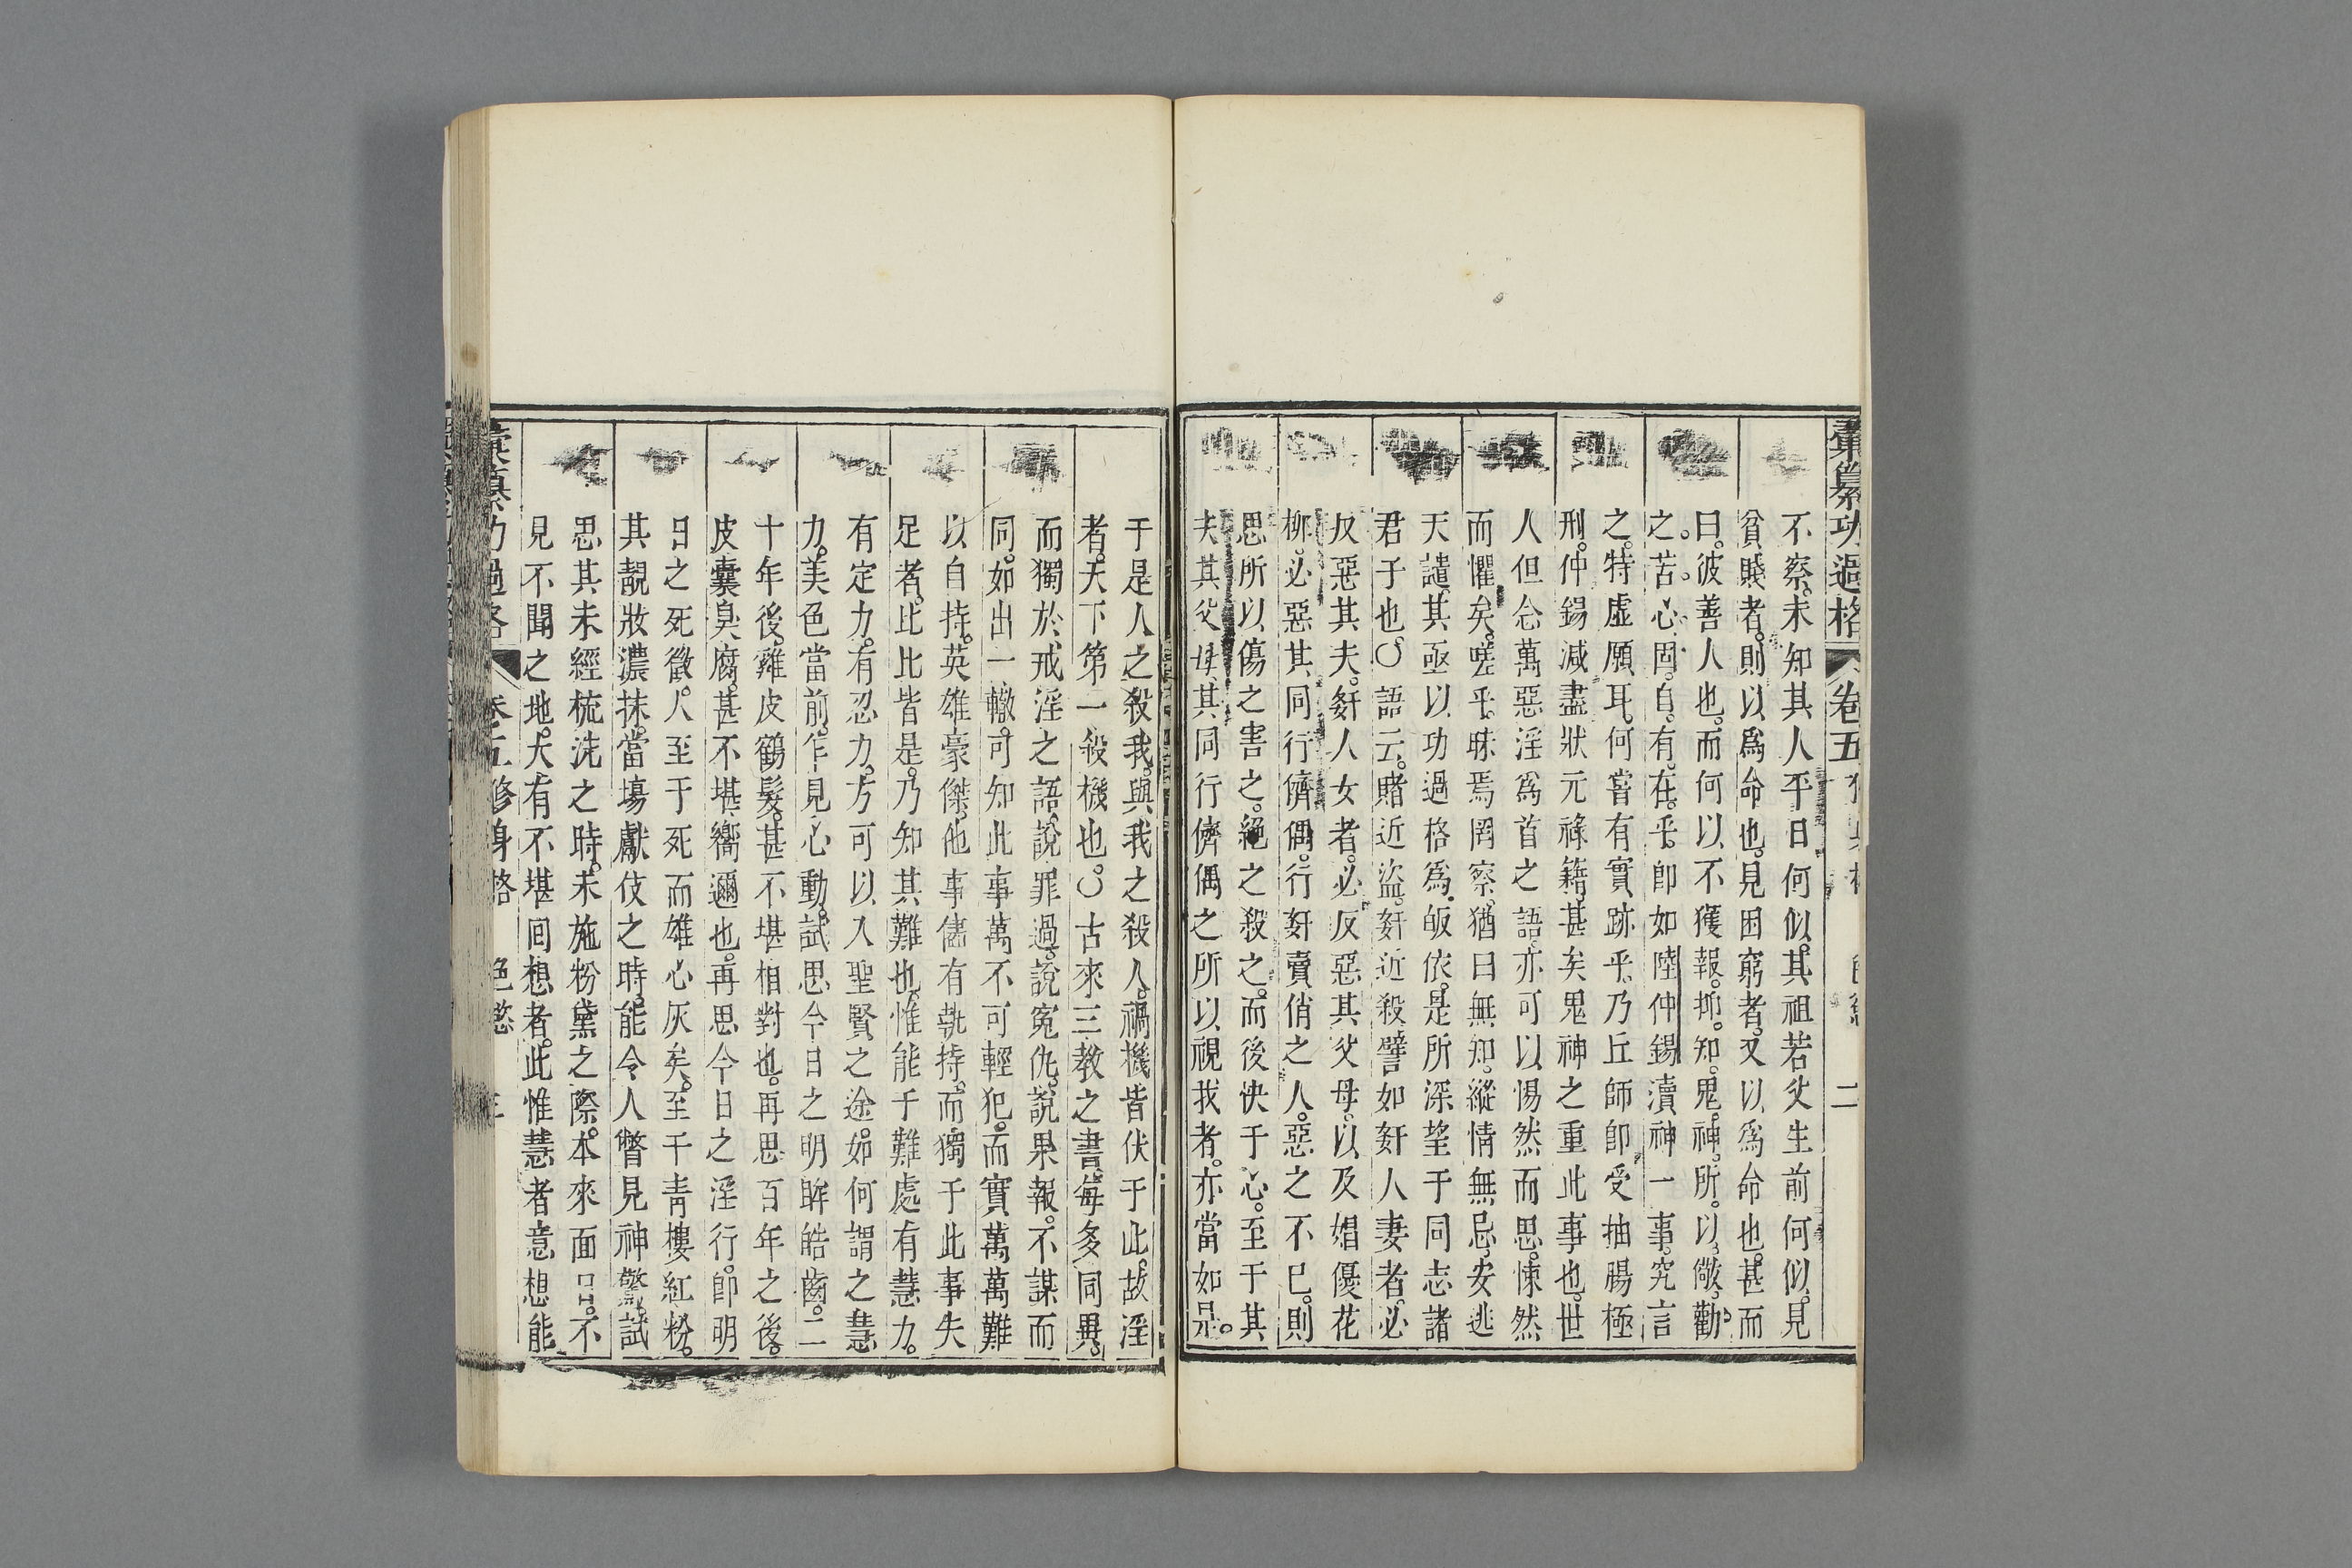 彙纂功過格 卷五 二
不察。未知其人平日何似。其祖若父生前何似。見
貧賤者。則以爲命也。見困窮者。又以爲命也。甚而
曰。彼善人也。而何以不獲報。抑知鬼神所以儆勸
之。苦心。固自有在乎。卽如陸仲錫瀆神一事。究言
之。特虛願耳。何嘗有實跡乎。乃丘師卽受抽腸極
刑。仲錫減盡狀元祿籍。甚矣鬼神之重此事也。世
人但念萬惡淫爲首之語。亦可以惕然而思。悚然
而懼矣。嗟乎。昧焉罔察。猶曰無知。縱情無忌。安逃
天譴。其亟以功過格爲皈依。是所深望于同志諸
君子也。〇語云。賭近盜。奸近殺。譬如奸人妻者。必
反惡其夫。奸人女者。必反惡其父母。以及娼優花
柳。必惡其同行儕偶。行奸賣俏之人。惡之不已。則
思所以傷之害之。絕之殺之。而後快于心。至于其
夫其父母其同行儕偶之所以視我者。亦當如是。
于是人之殺我。與我之殺人。禍機皆伏于此。故淫
者。天下第一殺機也。〇古來三教之書。每多同異。
而獨於戒淫之語。說罪過。說寃仇。說果報。不謀而
同。如出一轍。可知此事萬不可輕犯。而實萬萬難
以自持。英雄豪傑。他事儘有執持。而獨于此事失
足者。比比皆是。乃知其難也。惟能于難處有慧力。
有定力。有忍力。方可以入聖賢之途。如何謂之慧
力。美色當前。乍見心動。試思今日之明眸皓齒。二
十年後。雞皮鶴髮。甚不堪相對也。再思百年之後。
皮囊臭腐。甚不堪嚮邇也。再思今日之淫行。卽明
日之死徵。人至于死而雄心灰矣。至于靑樓紅粉。
其靚妝濃抹。當塲獻伎之時。能令人瞥見神驚。試
思其未經梳洗之時。未施粉黛之際。本來面目。不
見不聞之地。大有不堪回想者。此惟慧者意想能
彙纂功過格 卷五 修身格 色慾 三